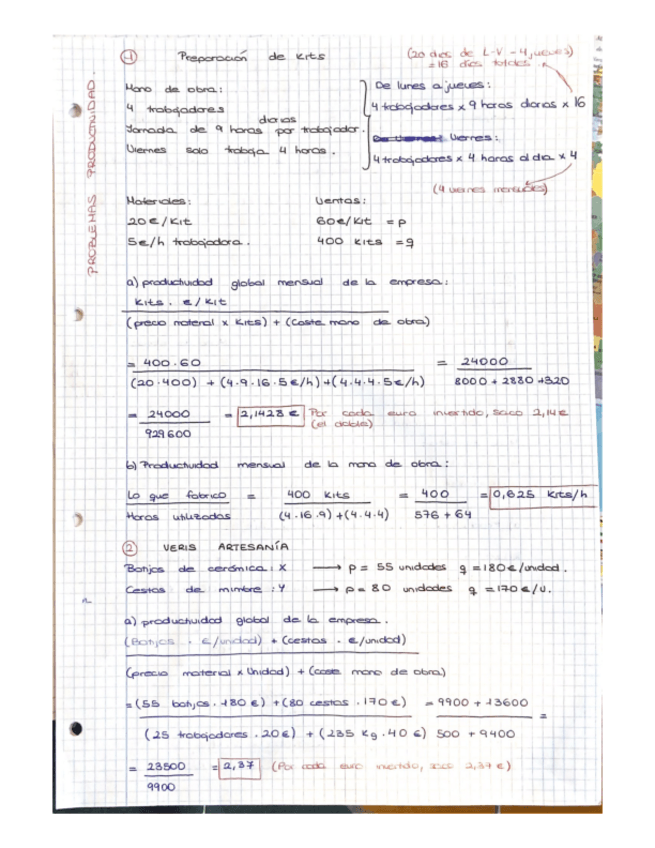 PROBLEMAS PRODUCTIVIDAD.
1 Preparación de kits
(20 dias de L-V - 4 jueves)
= 16 dias totales
Mano de obra:
4 trabajadores
diarias
Jornada de 9 horas por trabajador.
Viernes solo trabaja 4 horas.
De lunes a jueves:
4 trabajadores x 9 horas diarias x 16
Viernes:
4 trabajadores x 4 horas al dia x 4
(4 viernes mensuales)
Materiales:
20€/Kit
5€/h trabajadora.
Ventas:
60€/Kit = p
400 kits = q
a) productividad global mensual de la empresa:
Kits. €/Kit
(precio material x Kits) + (Coste mano de obra)
= 400.60 = 24000
(20.400) + (4.9.16.5€/h)+(4.4.4.5€/h) 8000 + 2880 +320
= 24000 = 2,1428 € Por cada euro invertido, saco 2,14€
929600 (el doble)
b) Productividad mensual de la mano de obra:
Lo que fabrico = 400 Kits = 400 = 0,625 Kits/h
Horas utilizadas (4.16.9)+(4.4.4) 576 + 64
2 VERIS ARTESANÍA
Botijos de cerámica: X → p = 55 unidades q = 180€/unidad.
Cestas de mimbre: Y → p = 80 unidades q = 170€/u.
a) productividad global de la empresa.
(Botijos . €/unidad) + (cestas . €/unidad)
(precio material x Unidad) + (coste mano de obra)
= (55 botijos.180 €) + (80 cestas .170 €) = 9900 + 13600 =
(25 trabajadores .20€) + (235 Kg.40 €) 500 + 9400
= 23500 = 2,37 (Por cada euro invertido, saco 2,37€)
9900